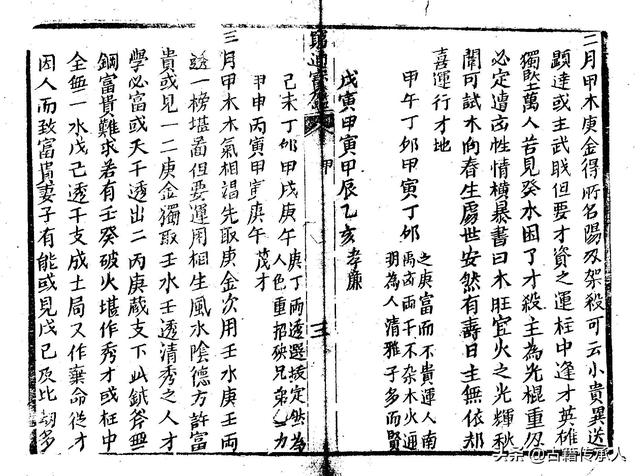 二月甲木庚金得所名陽刃架殺可云小貴異途
顯達或主武職但要才資之運柱中逢才英雄
獨壓萬人若見癸水困了才殺主為光棍重刃
必定遭凶性情橫暴書曰木旺宜火之光輝秋
闈可試木向春生處世安然有壽日主無依却
喜運行才地
甲午丁卯甲寅丁卯
之庚富而不貴運入南
兩丙兩干不雜木火通
明為人清雅子多而賢
戊寅甲寅甲辰乙亥 孝廉
窮通寶鑑
甲
三
己未丁卯甲戌庚午
庚丁兩透選拔定然為
人色重招殃兄弟力
甲申丙寅甲寅庚午 茂才
三月甲木木氣相竭先取庚金次用壬水庚壬兩
透一榜堪圖但要運用相生風水陰德方許富
貴或見一二庚金獨取壬水壬透清秀之人才
學必富或天干透出二丙庚藏支下此鈍斧無
鋼富貴難求若有壬癸破火堪作秀才或柱中
全無一水戊己透干支成土局又作棄命從才
因人而致富貴妻子有能或見戊己及比胡多
头条@古籍传承人